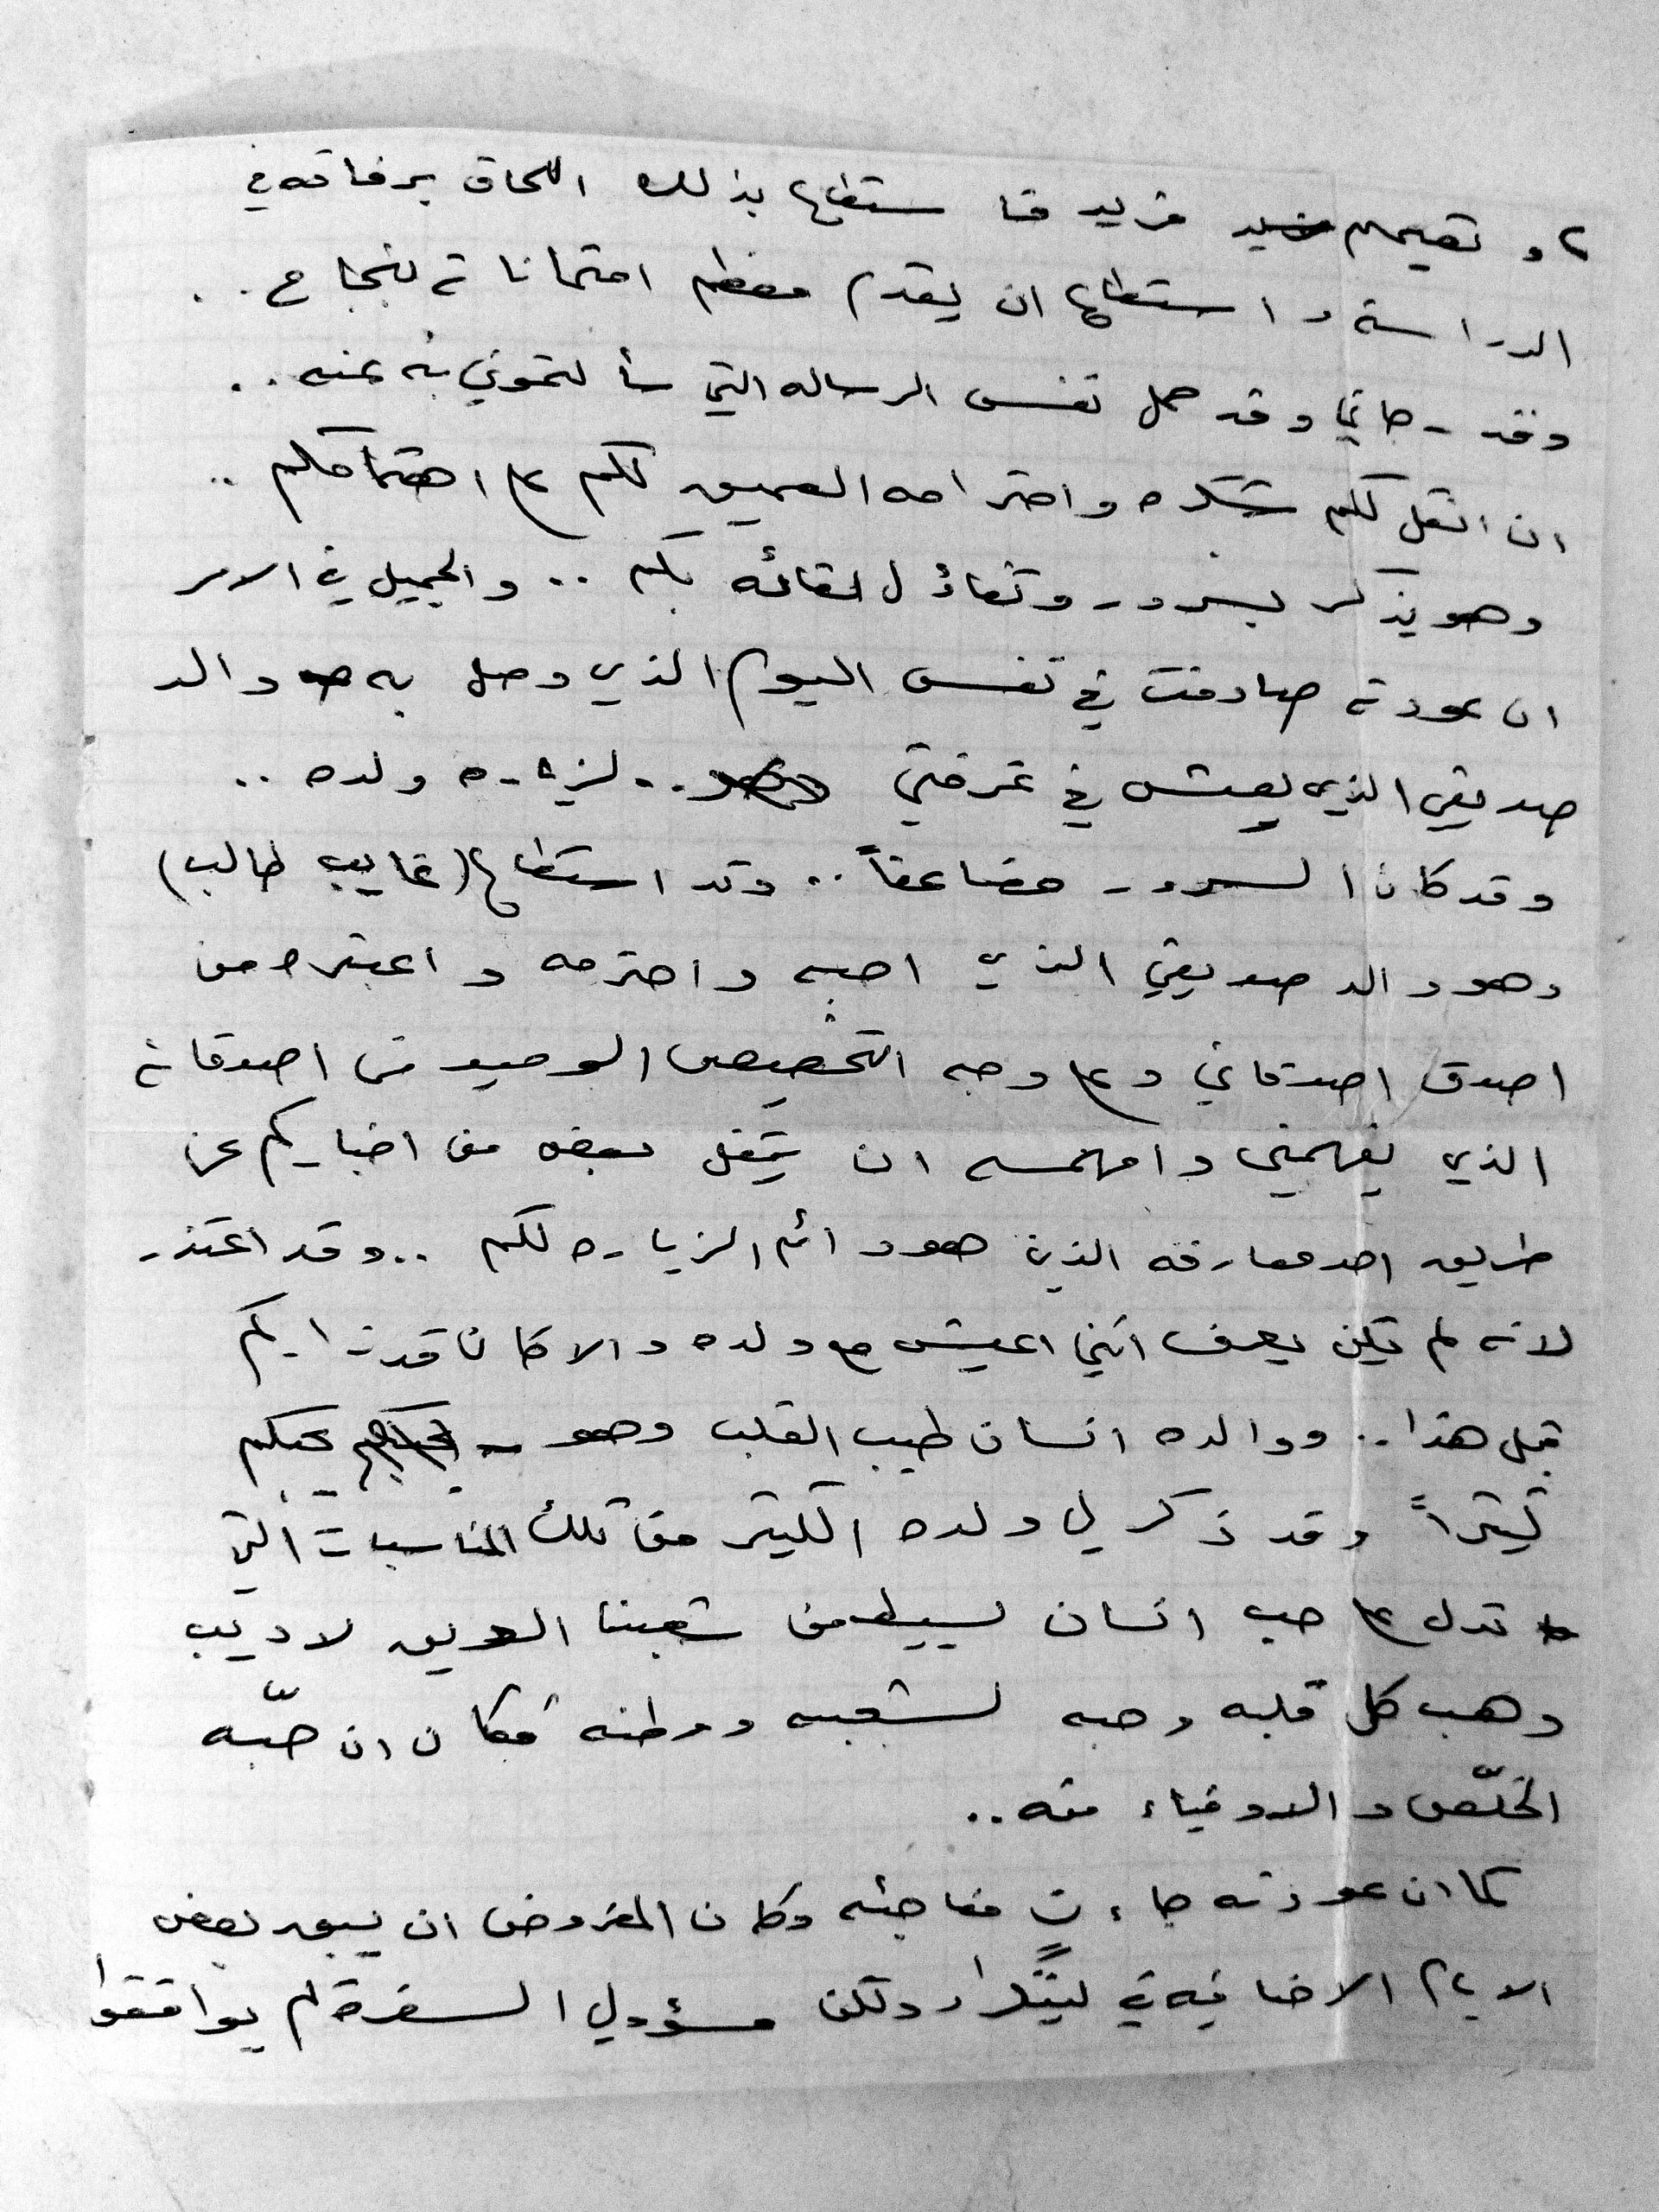 و تصميم فريد فاستطاع بذلك اللحاق برفاقه في
الدراسة واستطاع ان يقدم معظم امتحاناته بنجاح ..
وقد رجاني وقد حمل نفس الرساله التي سألتموني به عنه ..
ان انقل لكم شكره واحترامه العميق لكم على اهتمامكم ..
وهو يذكر بسرور وتفاؤل لقائه بكم .. والجميل في الامر
ان عودته صادفت في نفس اليوم الذي وصل به والد
صديقي الذي يعيش في غرفتي .. لزياره ولده ..
وقد كان السرور مضاعفاً .. وقد استطاع (غايب طالب)
وهو والد صديقي الذي احبه واحترمه واعتبره من
اصدق اصدقائي وعلى وجه التخصيص الوحيد من اصدقائه
الذي يفهمني وافهمه ان ينقل بعض من اخباركم عن
طريق احد معارفه الذين هو دائم الزياره لكم .. وقد اعتذر
لانه لم يكن يعرف انني اعيش مع ولده والا كان قد زاركم
قبل هذا .. ووالده انسان طيب القلب وهو يحبكم
كثيراً وقد ذكر لي ولده الكثير من تلك المناسبات التي
تدل على حب انسان بسيط من شعبنا العريق لاديب
وهب كل قلبه وحبه لشعبه ووطنه فكان ان حبّه
الخلّص والاوفياء منه ..
كما ان عودته جاءت مفاجئه وكان المفروض ان يبق بعض
الايام الاضافية في لينينغراد ولكن مسؤولي السفرة لم يوافقوا